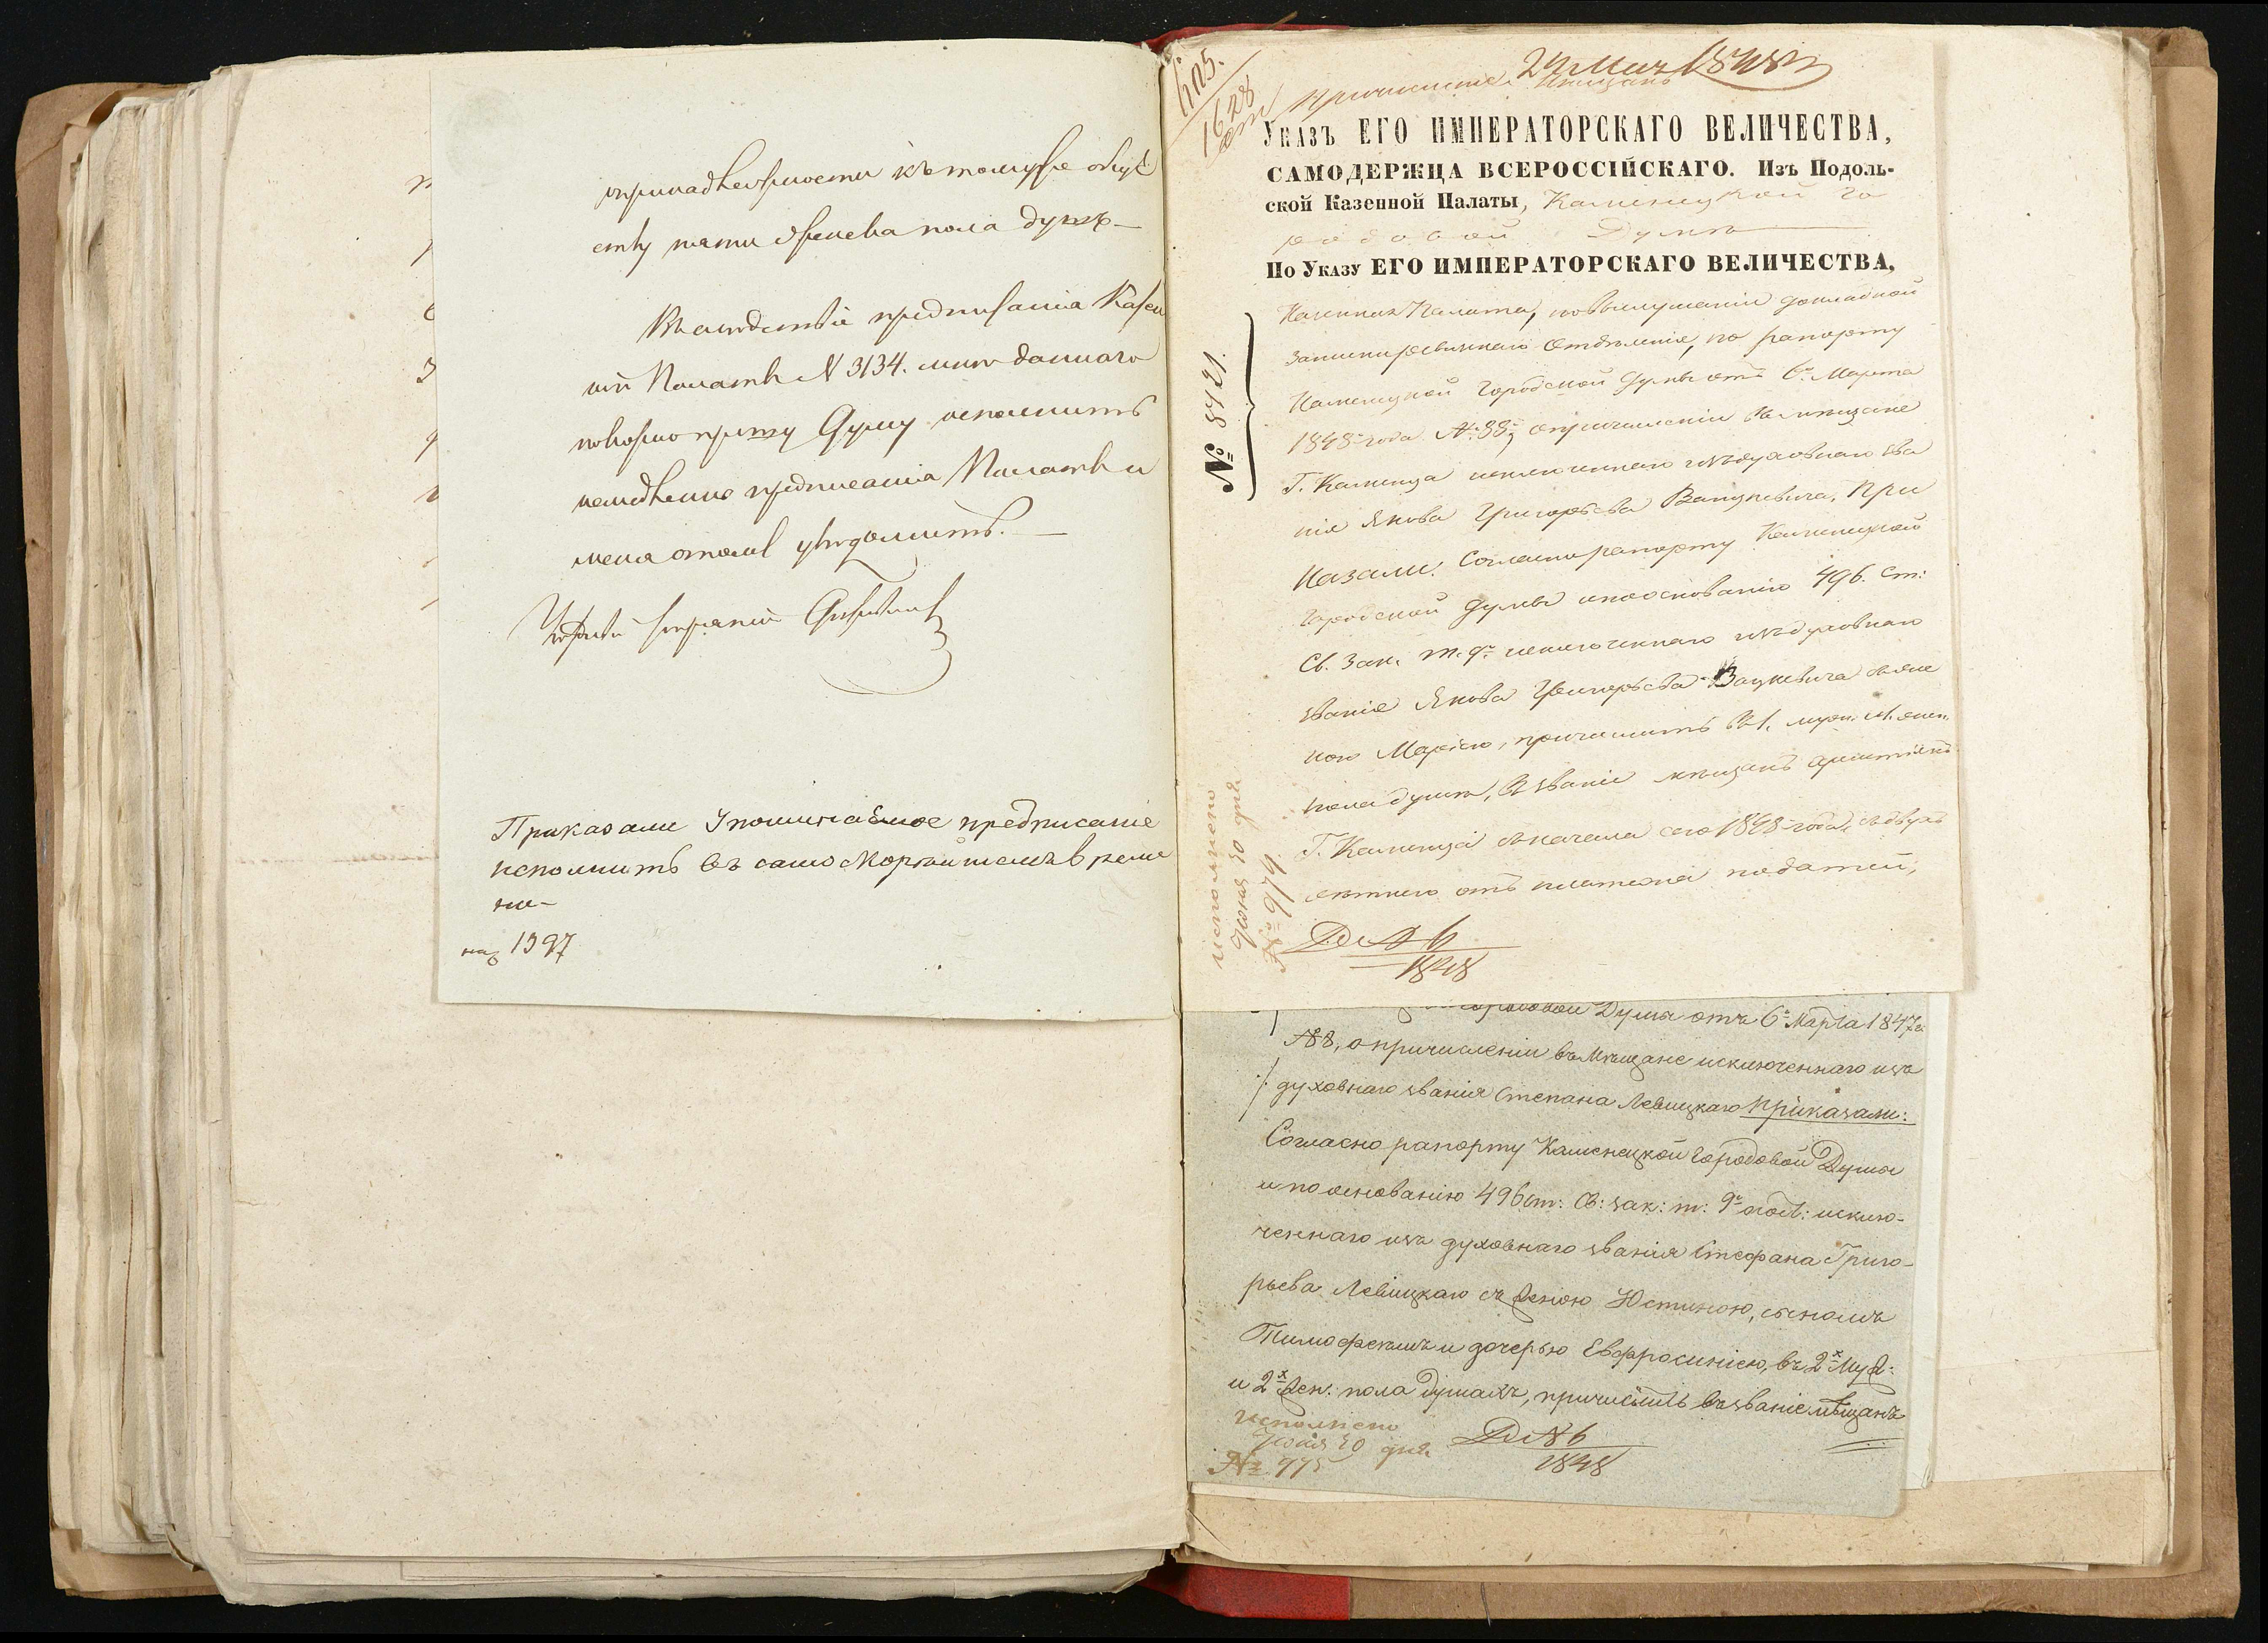 къ томуже обще
ству пяти женска пола душъ —
Въ следствіе предписанія Казен
ной Палаты N 3134. мне даннаго
покорно прошу Думу исполнить
немедленно предписанія Палаты и
меня о томъ уведомить. —
Приказали Упоминаемое предписаніе
исполнить въ само скорейшемъ време
не —
1397
1628
1848
Указъ ЕГО ИМПЕРАТОРСКАГО ВЕЛИЧЕСТВА,
САМОДЕРЖЦА ВСЕРОССІЙСКАГО. Изъ Подоль-
ской Казенной Палаты, Каменецкой Го
родовой Думѣ
По Указу ЕГО ИМПЕРАТОРСКАГО ВЕЛИЧЕСТВА,
№ 8421.
Казенная Палата, по выслушаніи докладной
записки Ревизскаго Отдѣленія, по рапорту
Каменецкой Городской Думы отъ 6го Марта
1848 года № 88, о причисленіи въ мѣщане
Г. Каменца исключеннаго изъ духовнаго зва
нія Якова Григорьева Вацкевича, При
казали: Согласно рапорту Каменецкой
Городской Думы и по основанію 496. ст:
Св. Зак. т. 9го исключеннаго изъ духовнаго
званія Якова Григорьева Вацкевича съ же
ною Маріею, причислить въ 1. муж. и 1. женс.
пола душѣ, въ званіе мѣщанъ христіянъ
Г. Каменца съ начала сего 1848 года, съ двухъ
лѣтнею отъ платежа податей,
исполнено
Іюня 30 дня
№ 979
1848
Думы отъ 6го Марта 1847 г.
№ 8, о причисленіи въ Мѣщане исключеннаго изъ
духовнаго званія Степана Левицкаго приказали:
Согласно рапорту Каменецкой Городовой Думы
и по основанію 496 ст: Св: зак: т: 9го сост: исклю-
ченнаго изъ духовнаго званія Стефана Григо-
рьева Левицкаго съ женою Юстиною, сыномъ
Тимофеемъ и дочерью Евфросиніею, въ 2х муж:
и 2х жен. пола душахъ, причислить въ званіе мѣщанъ
исполнено
Іюня 30 дня
№ 975
1848